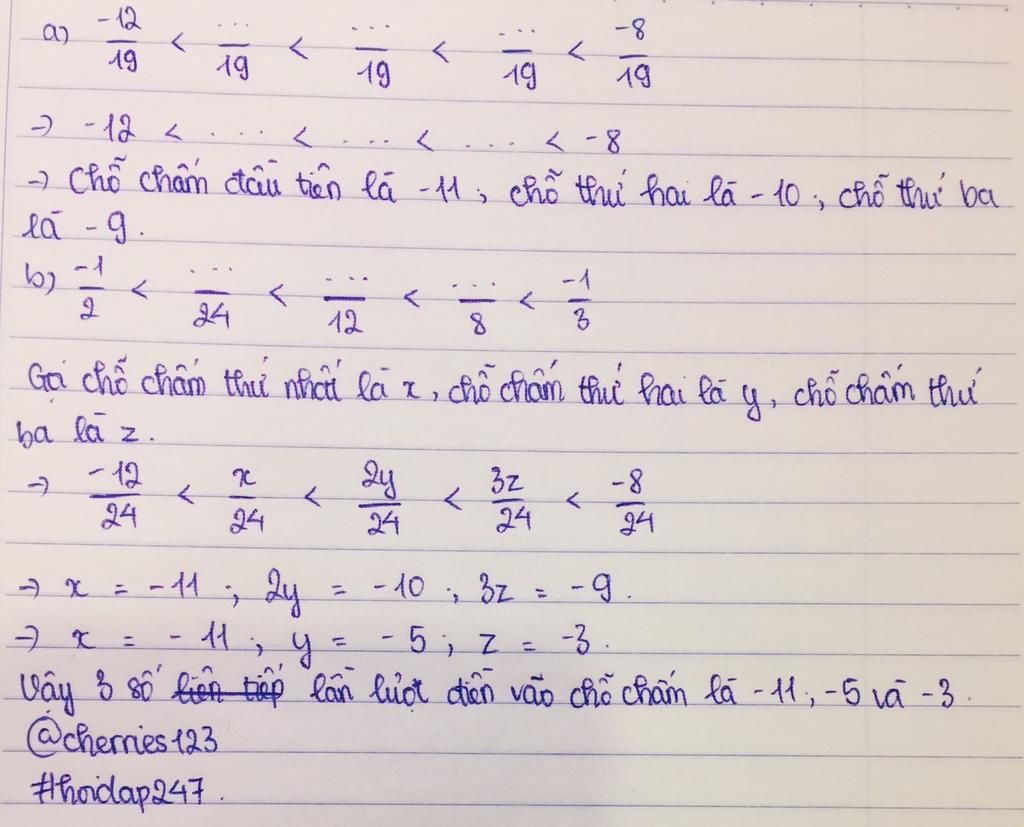 a) -12/19 < .../19 < .../19 < .../19 < -8/19
→ -12 < ... < ... < ... < -8
→ Chỗ chấm đầu tiên là -11; chỗ thứ hai là -10; chỗ thứ ba
là -9.
b) -1/2 < .../24 < .../12 < .../8 < -1/3
Gọi chỗ chấm thứ nhất là x, chỗ chấm thứ hai là y, chỗ chấm thứ
ba là z.
→ -12/24 < x/24 < 2y/24 < 3z/24 < -8/24
→ x = -11; 2y = -10; 3z = -9.
→ x = -11; y = -5; z = -3.
Vậy 3 số liên tiếp lần lượt điền vào chỗ chấm là -11; -5 và -3.
@cherries123
#hoidap247.